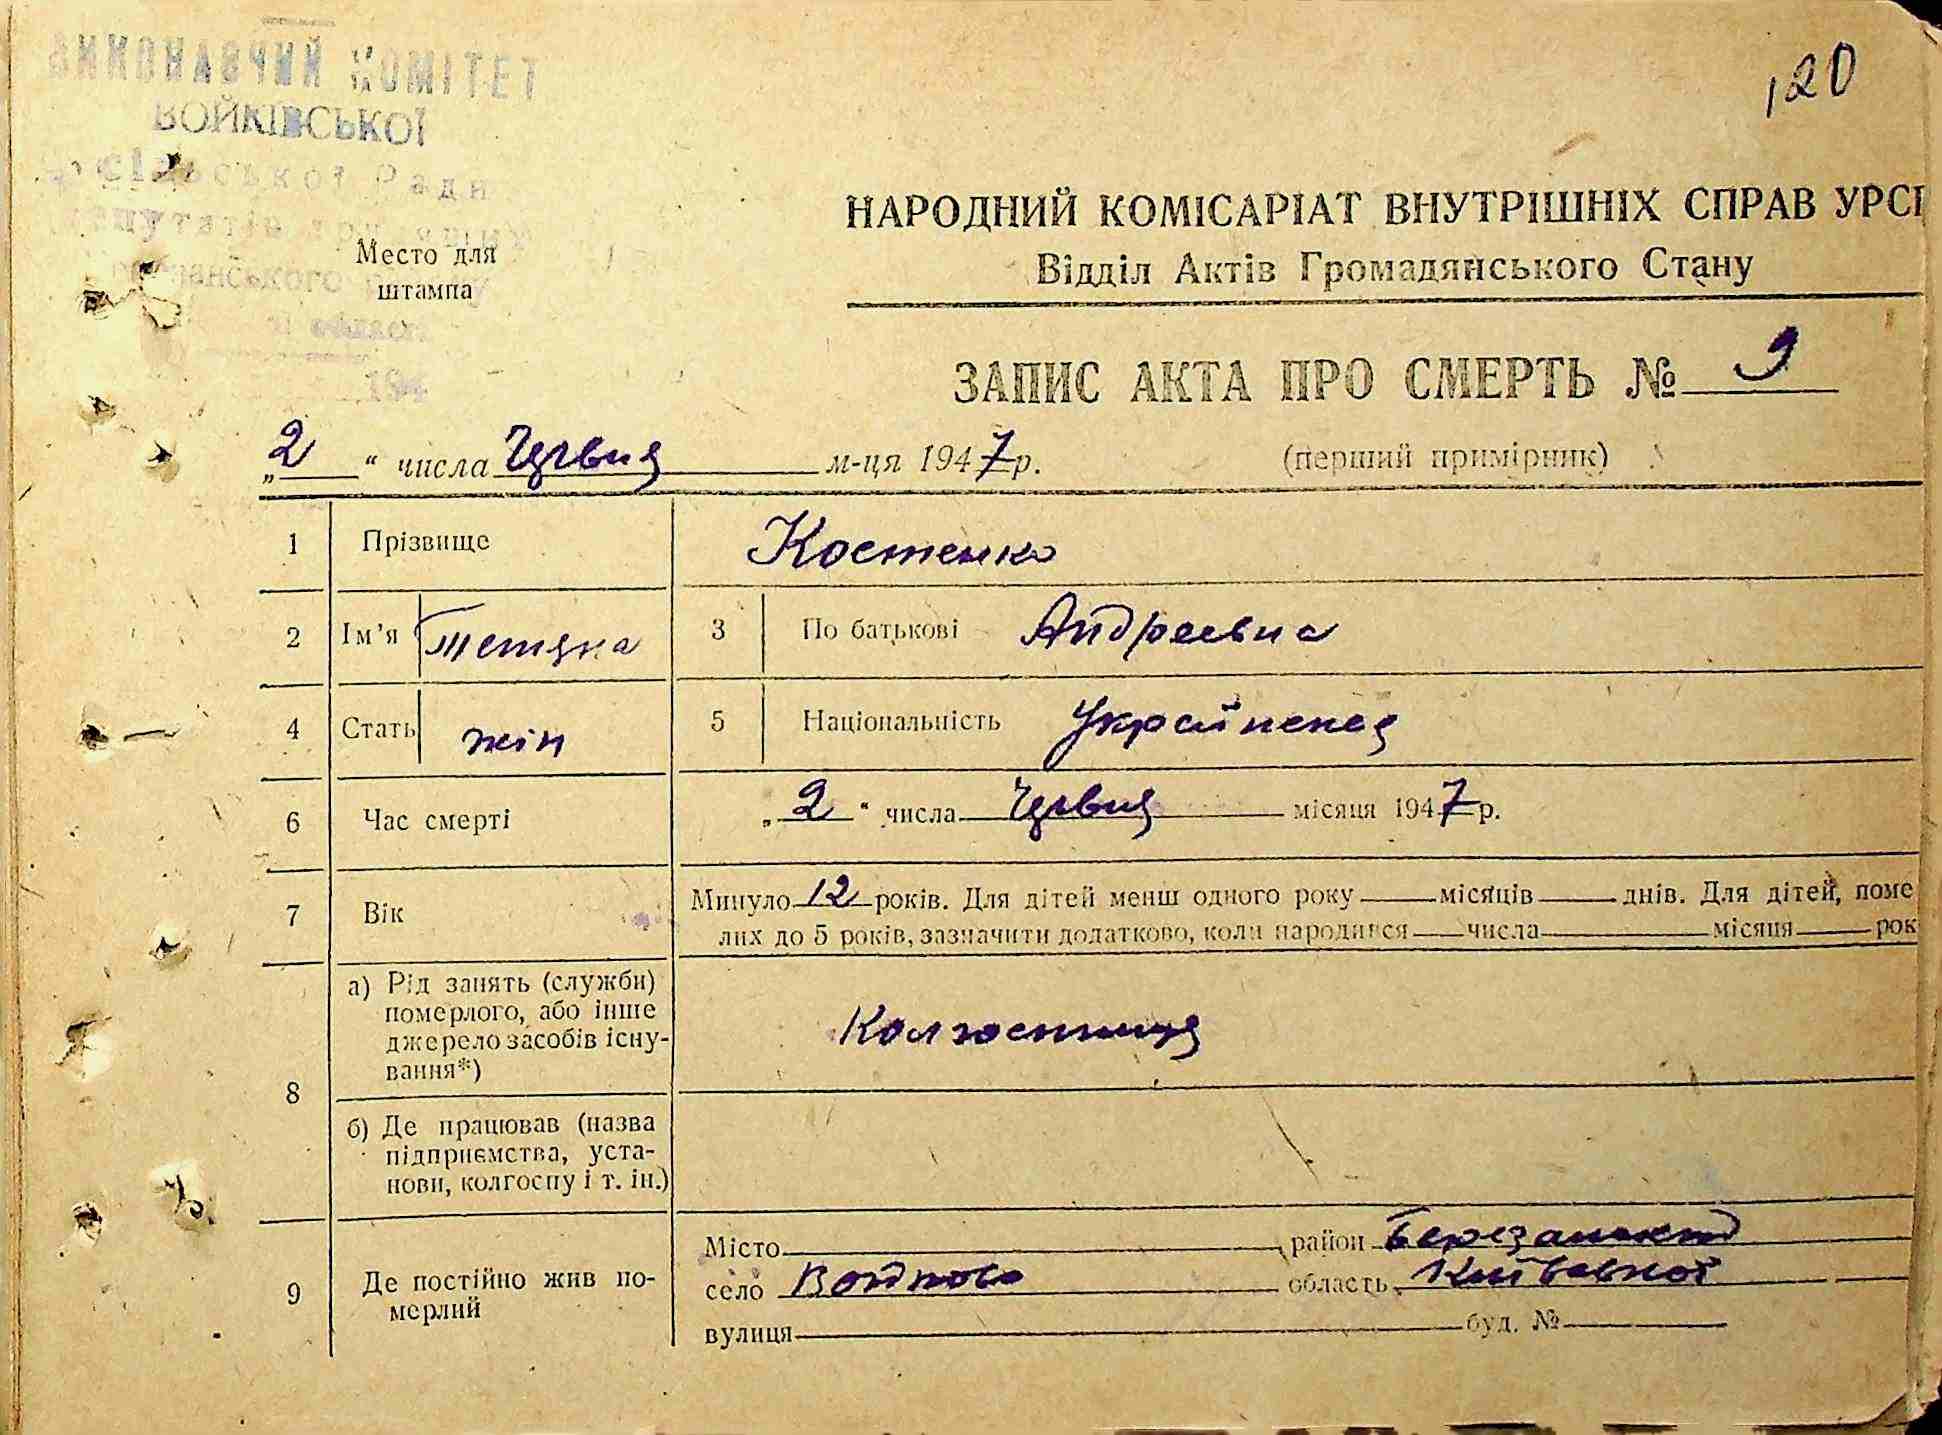 120
ВИКОНАВЧИЙ КОМІТЕТ
ВОЙКІВСЬКОЇ
сільської Ради
Место для
штампа
області
194
НАРОДНИЙ КОМІСАРІАТ ВНУТРІШНІХ СПРАВ УРСР
Відділ Актів Громадянського Стану
ЗАПИС АКТА ПРО СМЕРТЬ № 9
„2“ числа Червня м-ця 1947 р. (перший примірник)
1 Прізвище Костенко
2 Ім'я Тетяна 3 По батькові Андреевна
4 Стать жін 5 Національність
6 Час смерті „2“ числа Червня місяця 1947 р.
7 Вік Минуло 12 років. Для дітей менш одного року місяців днів. Для дітей, поме
лих до 5 років, зазначити додатково, коли народився числа місяця рок
8 а) Рід занять (служби)
померлого, або інше
джерело засобів існу-
вання*)
Колгоспниця
б) Де працював (назва
підприємства, уста-
нови, колгоспу і т. ін.)
9 Де постійно жив по-
мерлий
Місто район
село Войково область Київської
вулиця буд. №